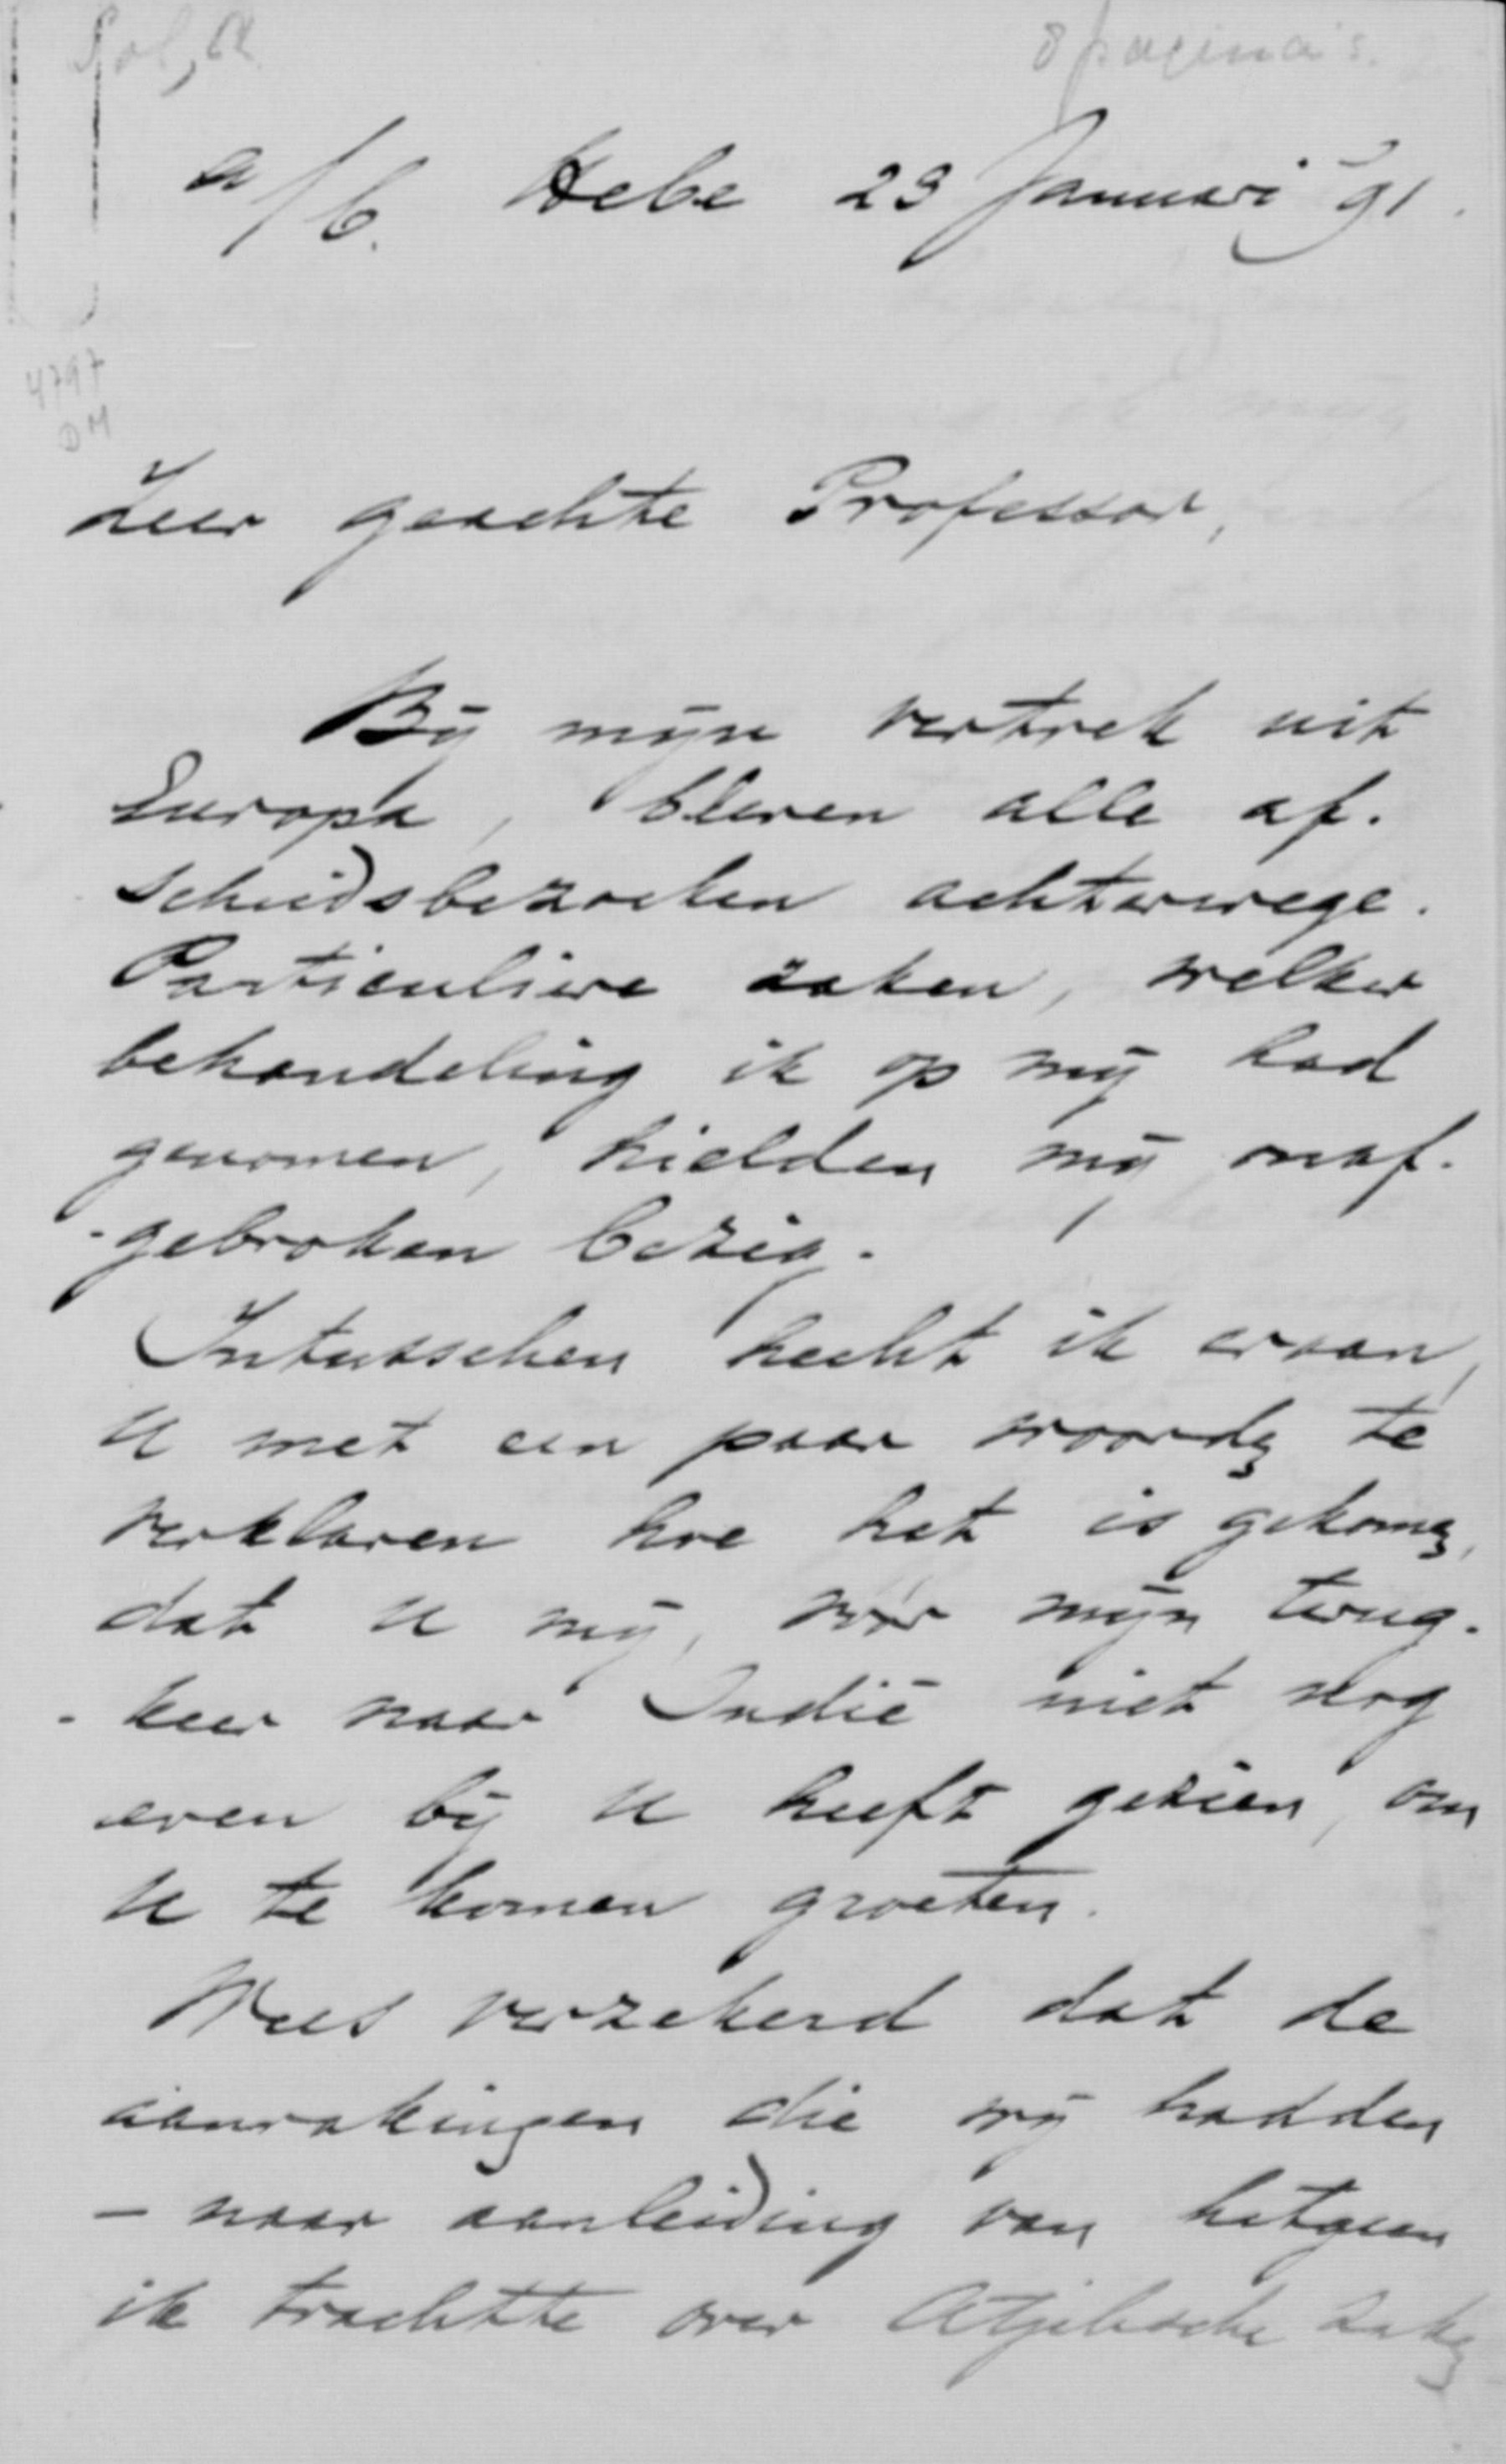 8 pagina's.
a/b. Hebe 23 Januari '91.
4797
DM
Zeer geachte Professor,
Bij mijn vertrek uit
Europa, bleven alle af-
scheidsbezoeken achterwege.
Particuliere zaken, welker
behandeling ik op mij had
genomen, hielden mij onaf-
-gebroken bezig.
Intusschen hecht ik eraan,
U met een paar woorden te
verklaren hoe het is gekomen,
dat U mij, vóór mijn terug-
-keer naar Indië niet nog
even bij U heeft gezien, om
U te komen groeten.
Wees verzekerd dat de
aanrakingen die wij hadden
- naar aanleiding van hetgeen
ik trachtte over Atjehsche zaken